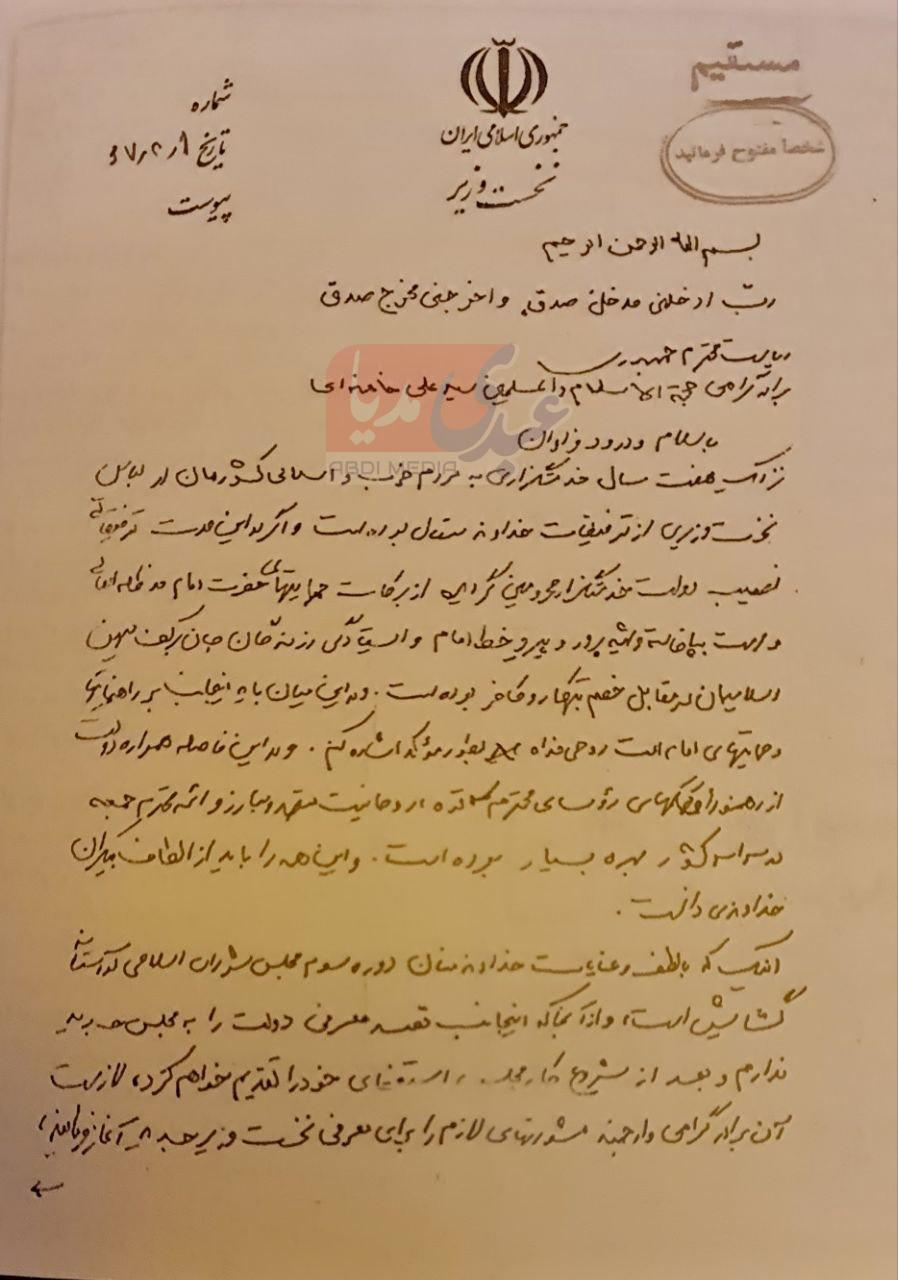 مستقیم
شخصاً مفتوح فرمائید
جمهوری اسلامی ایران
نخست وزیر
شماره
تاریخ ۶۷٫۲٫۱
پیوست
بسم الله الرحمن الرحیم
ربّ ادخلنی مدخل صدق و اخرجنی مخرج صدق
ریاست محترم جمهوری
برادر گرامی حجة الاسلام والمسلمین سید علی خامنه‌ای
عبدی مدیا
ABDI MEDIA
با سلام و درود فراوان
نزدیک هفت سال خدمتگزاری به مردم خوب و اسلامی کشورمان در لباس
نخست وزیری از توفیقات خداوند متعال بوده است و اگر در این مدت توفیقاتی
نصیب دولت خدمتگزار محرومین گردیده از برکات حمایتهای حضرت امام مد ظله العالی
و امت بپاخاسته و شهید پرور و پیرو خط امام و ایستادگی رزمندگان جان برکف میهن
اسلامیمان در مقابل خصم تبهکار و کافر بوده است. و در این میان باید اینجانب بر راهنمائیها
و حمایتهای امام امت روحی فداه بطور مؤکد اشاره کنم. و در این فاصله همواره دولت
از رهنمودها و کمکهای رؤسای محترم روحانیت متعهد و مبارز و ائمه محترم جمعه
در سراسر کشور بهره بسیار بوده است. و این همه را باید از الطاف بیکران
خداوندی دانست.
اینک که با لطف و عنایات خداوند منان دوره سوم مجلس شورای اسلامی در آستانه
گشایش است، و از آنجا که اینجانب قصد معرفی دولت را به مجلس جدید
ندارم و بعد از شروع کار مجلس، استعفای خود را تقدیم خواهم کرد، لازمست
آن برادر گرامی و ارجمند مشورتهای لازم را برای معرفی نخست وزیر جدید آغاز فرمایند،